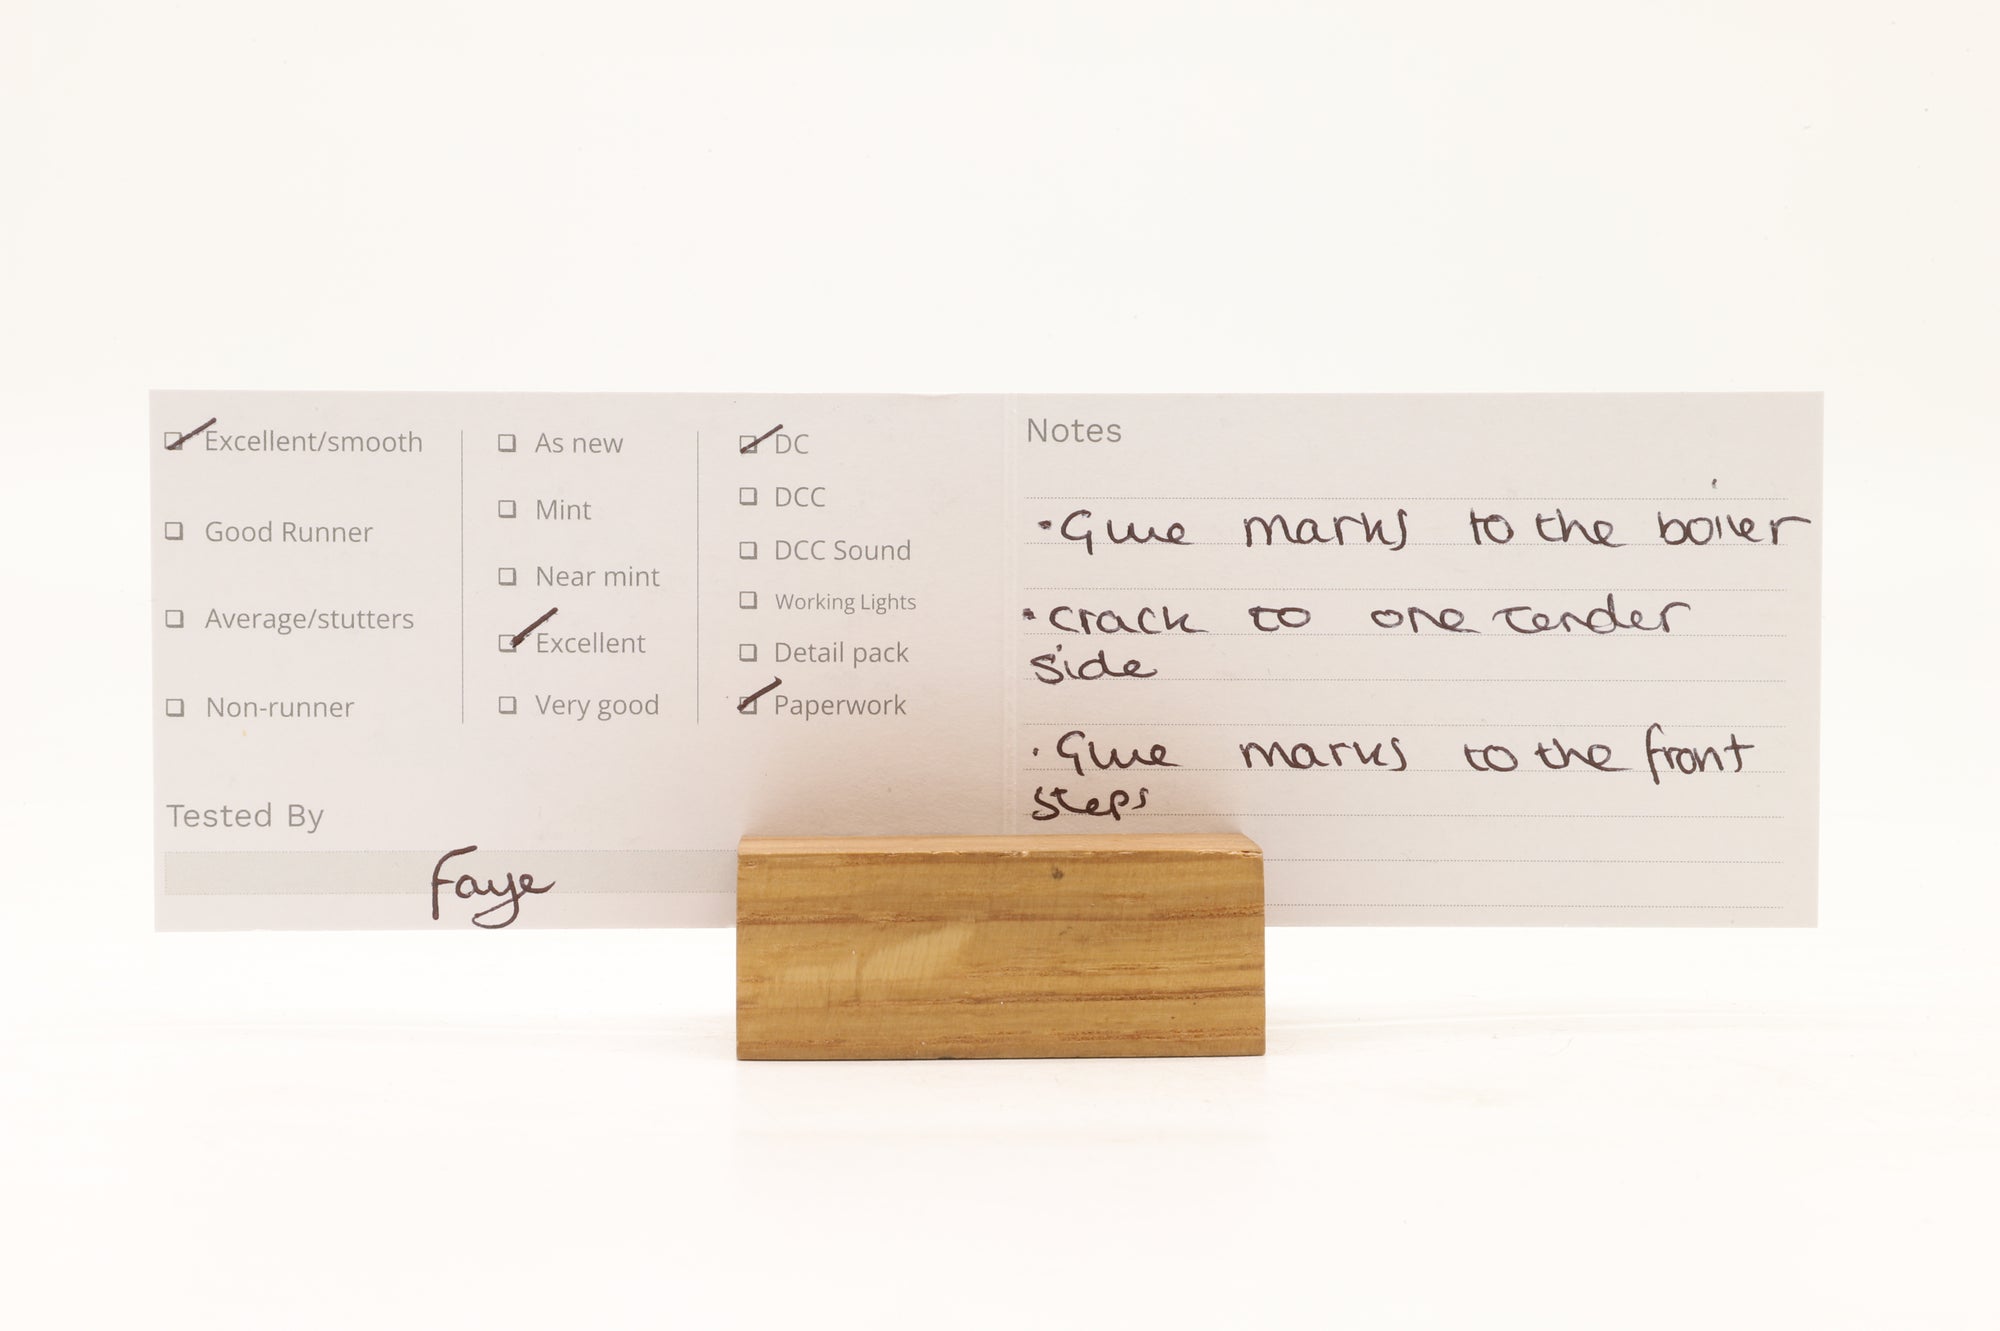 Excellent/smooth
Good Runner
Average/stutters
Non-runner
As new
Mint
Near mint
Excellent
Very good
DC
DCC
DCC Sound
Working Lights
Detail pack
Paperwork
Tested By
Faye
Notes
• Glue marks to the boiler
• crack to one tender
side
• Glue marks to the front
steps